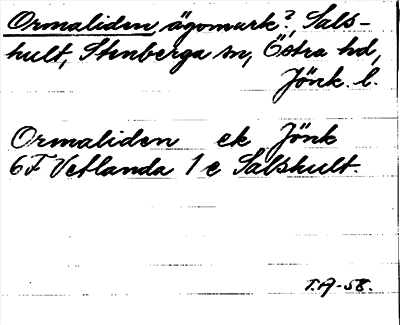 Ormaliden ägomark?, Sals-
hult, Stenberga sn, Östra hd,
Jönk. l.
Ormaliden ek Jönk
6F Vetlanda 1 e Salshult.
T.A-58.